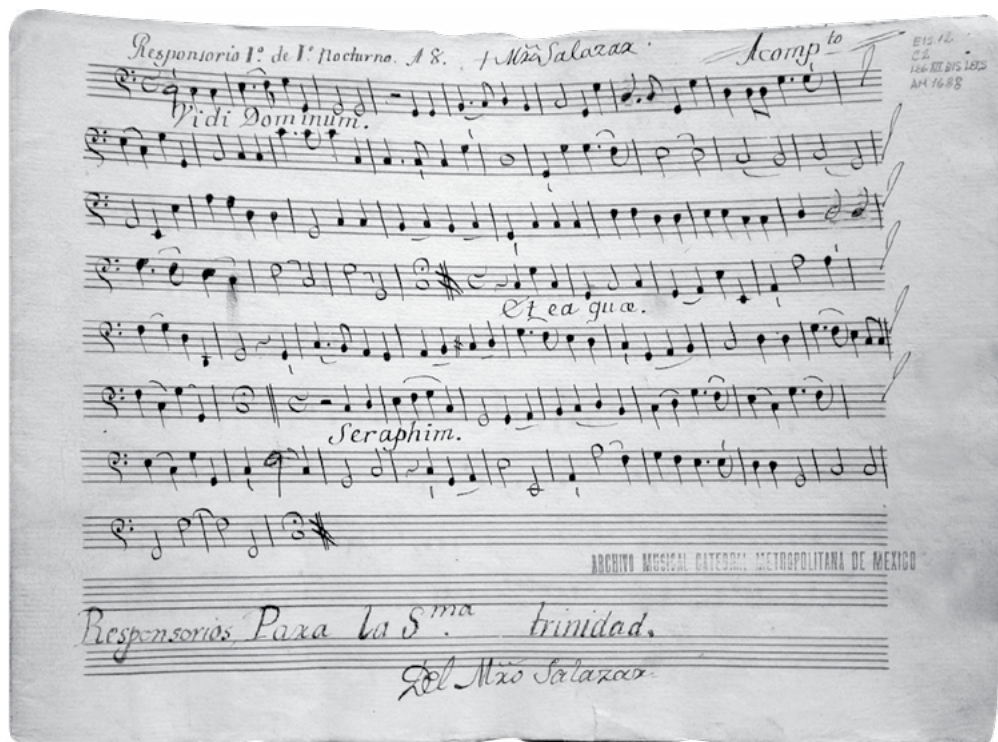 Responsorio 1º. de 1º. Nocturno. A 8. + Mrõ Salazar. Acomp.to
E15.12
C2
AM 1688
Vidi Dominum.
Et ea quæ.
Seraphim.
ARCHIVO MUSICAL CATEDRAL METROPOLITANA DE MEXICO
Responsorios, Para la S.ma trinidad.
Del Mrõ Salazar.